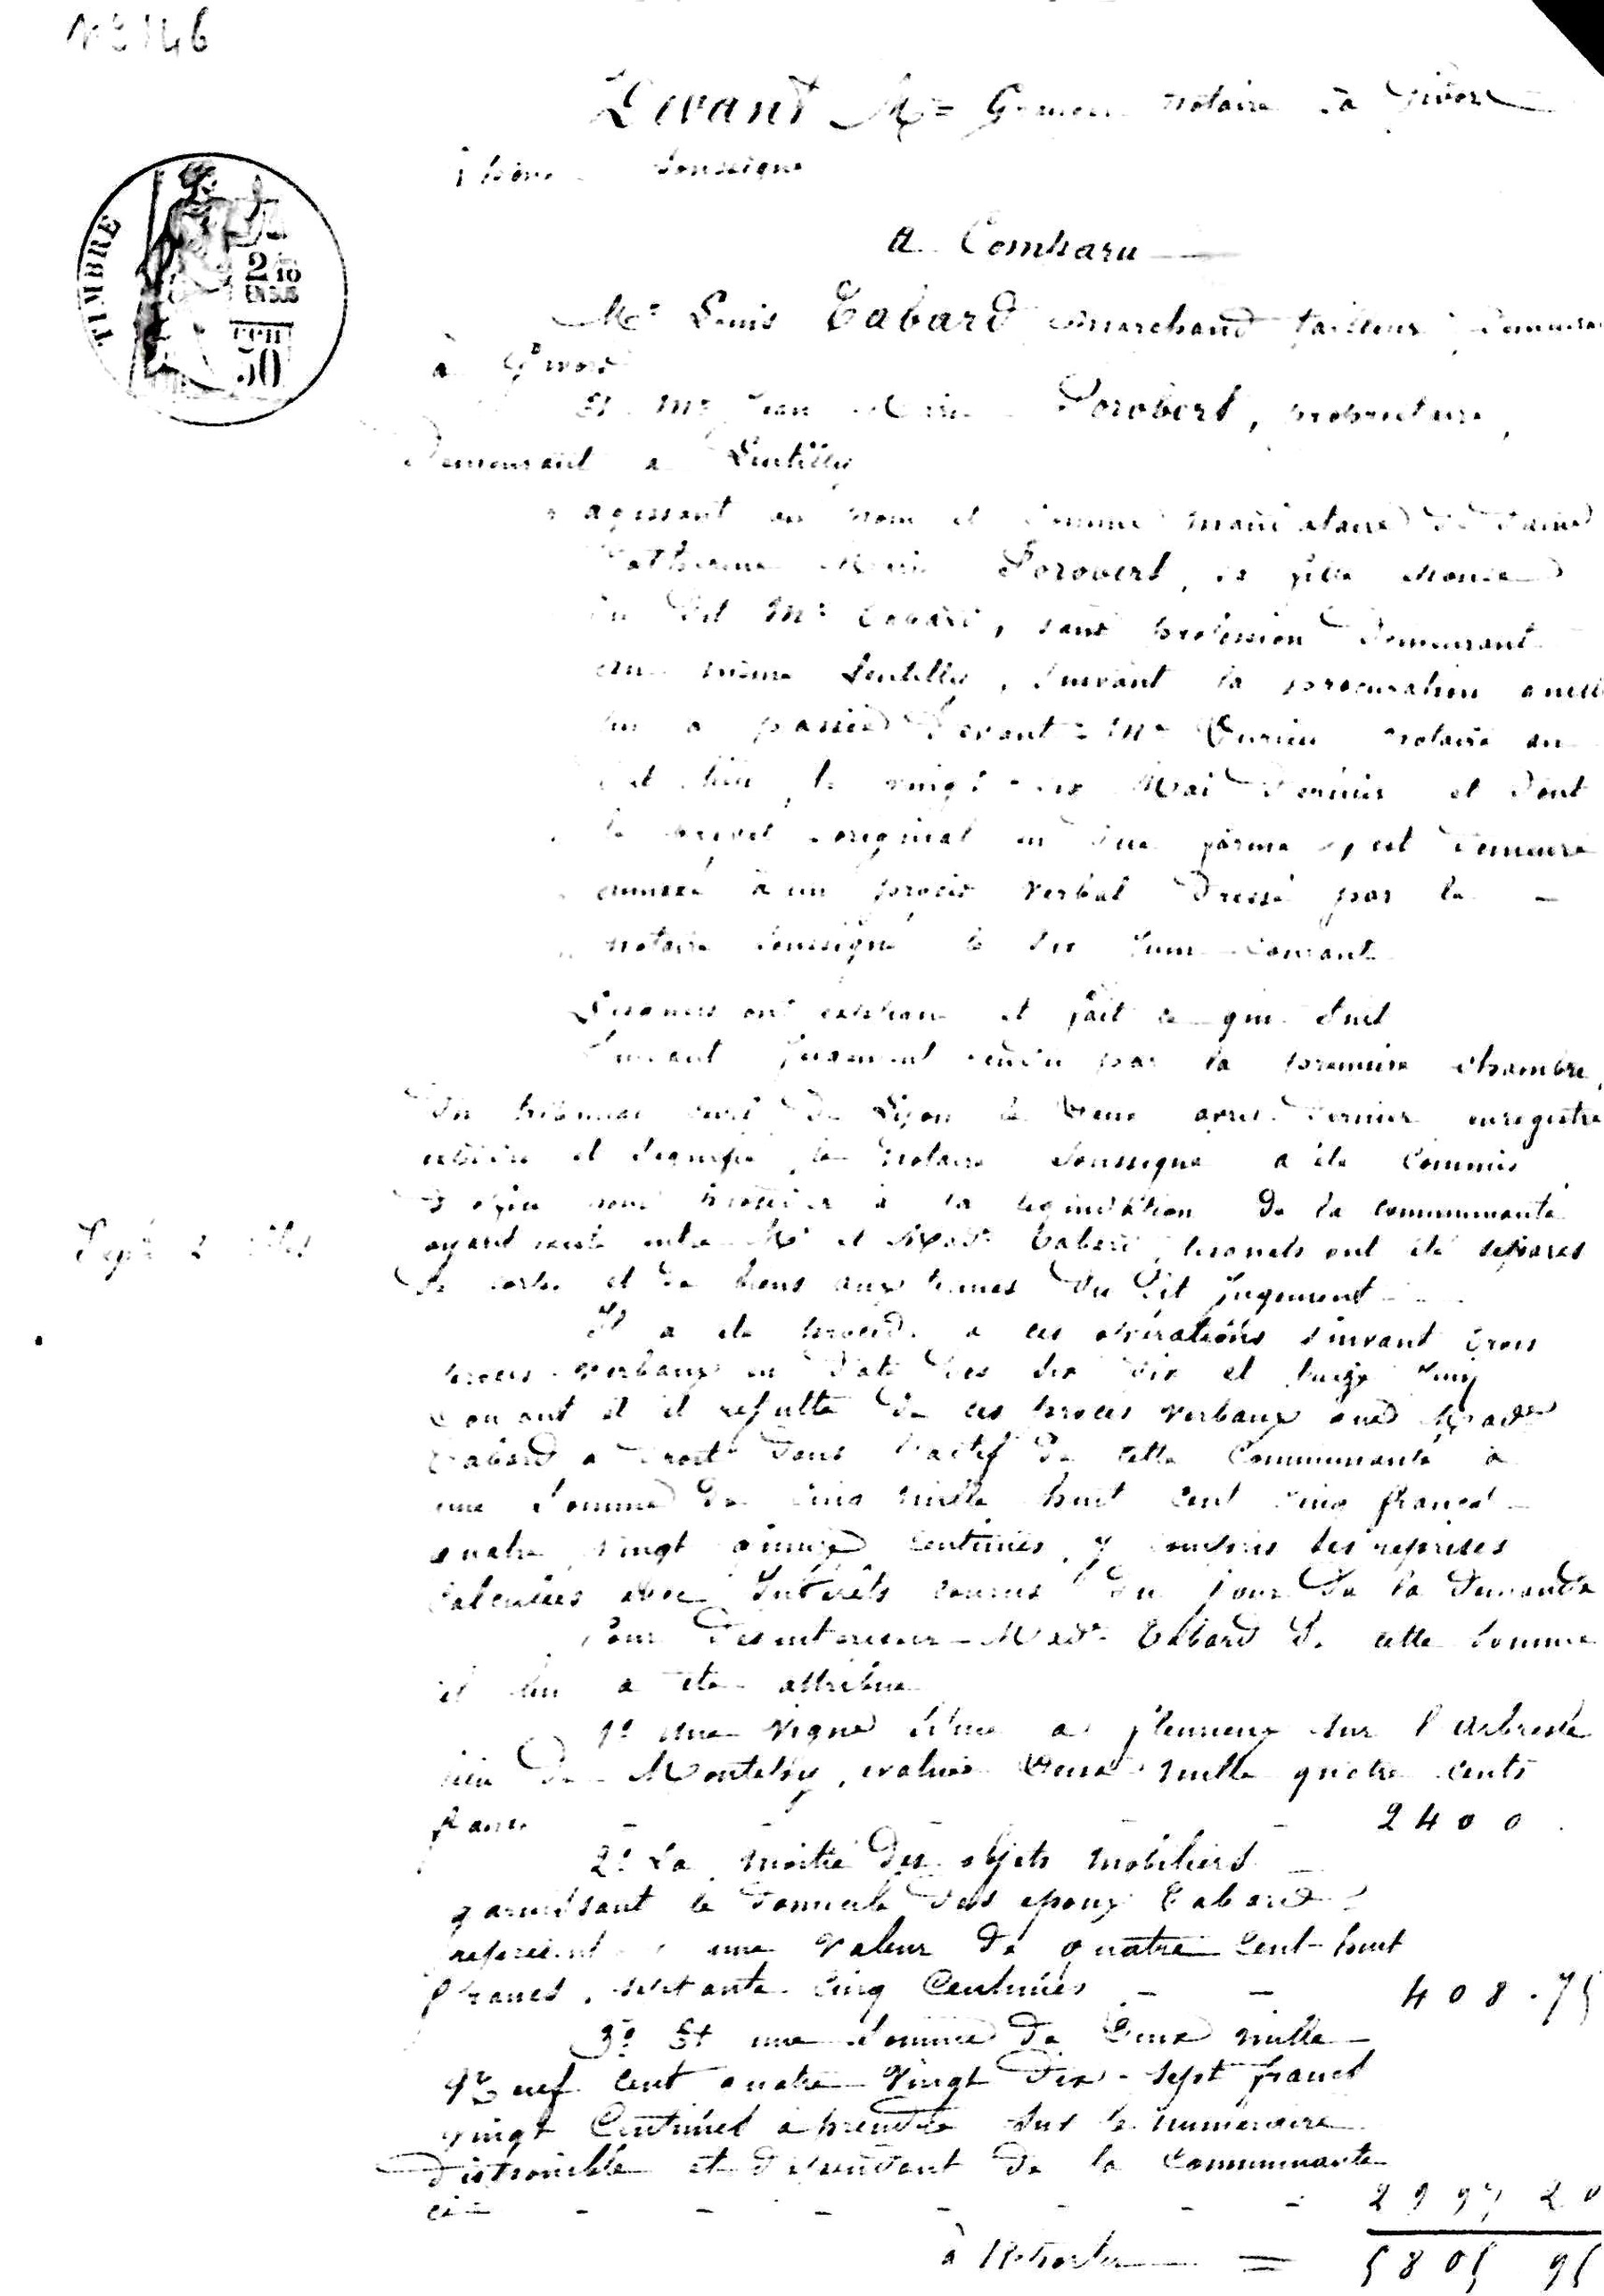 N° 146
Devant Me Gomon notaire à Givors
Rhône Soussigné
A Comparu
TIMBRE
2/10
EN SUS
50
Mr Louis Tabard marchand tailleur demeurant
à Givors
Et Mr Jean Marie Dorobert, propriétaire,
demeurant à Lentilly
agissant au nom et comme mandataire de dame
Catherine Marie Dorobert, sa fille épouse
du dit Mr Tabard, sans profession demeurant
au même Lentilly, suivant la procuration qu'elle
lui a passée devant Me notaire au
dit lieu, le vingt six Mai dernier et dont
le brevet original en due forme est demeuré
annexé à un procès verbal dressé par le
notaire soussigné le dix Juin courant
Lesquels ont exposé et fait ce qui suit
Suivant jugement rendu par la première chambre
du tribunal civil de Lyon le deux avril dernier enregistré
et signifié, le notaire soussigné a été commis
pour procéder à la liquidation de la communauté
ayant existé entre Mr et Made Tabard, lesquels ont été séparés
de corps et de biens aux termes du dit jugement
Il a été procédé à ces opérations suivant trois
procès verbaux en date des dix et treize Juin
Courant et il résulte de ces procès verbaux que Made
Tabard a droit dans l'actif de cette Communauté à
une somme de cinq mille huit cent cinq francs
quatre vingt quinze centimes, y compris ses reprises
calculées avec Intérêts courus du jour de la demande
Pour désintéresser Made Tabard de cette somme
il lui a été attribué
1° Une vigne située à fleurieux sur l'Arbresle
lieu de Montelly, évaluée deux mille quatre cents
francs - - - - - 2400
2° La moitié des objets mobiliers
garnissant le domicile des époux Tabard
représentant une valeur de quatre cent huit
francs, septante cinq Centimes - - 408.75
3° Et une somme de deux mille
Neuf cent quatre Vingt dix-sept francs
vingt Centimes à prendre sur le numéraire
disponible et dépendant de la Communauté
ci - - - - - - - 2997 20
à Reporter = 5805 95